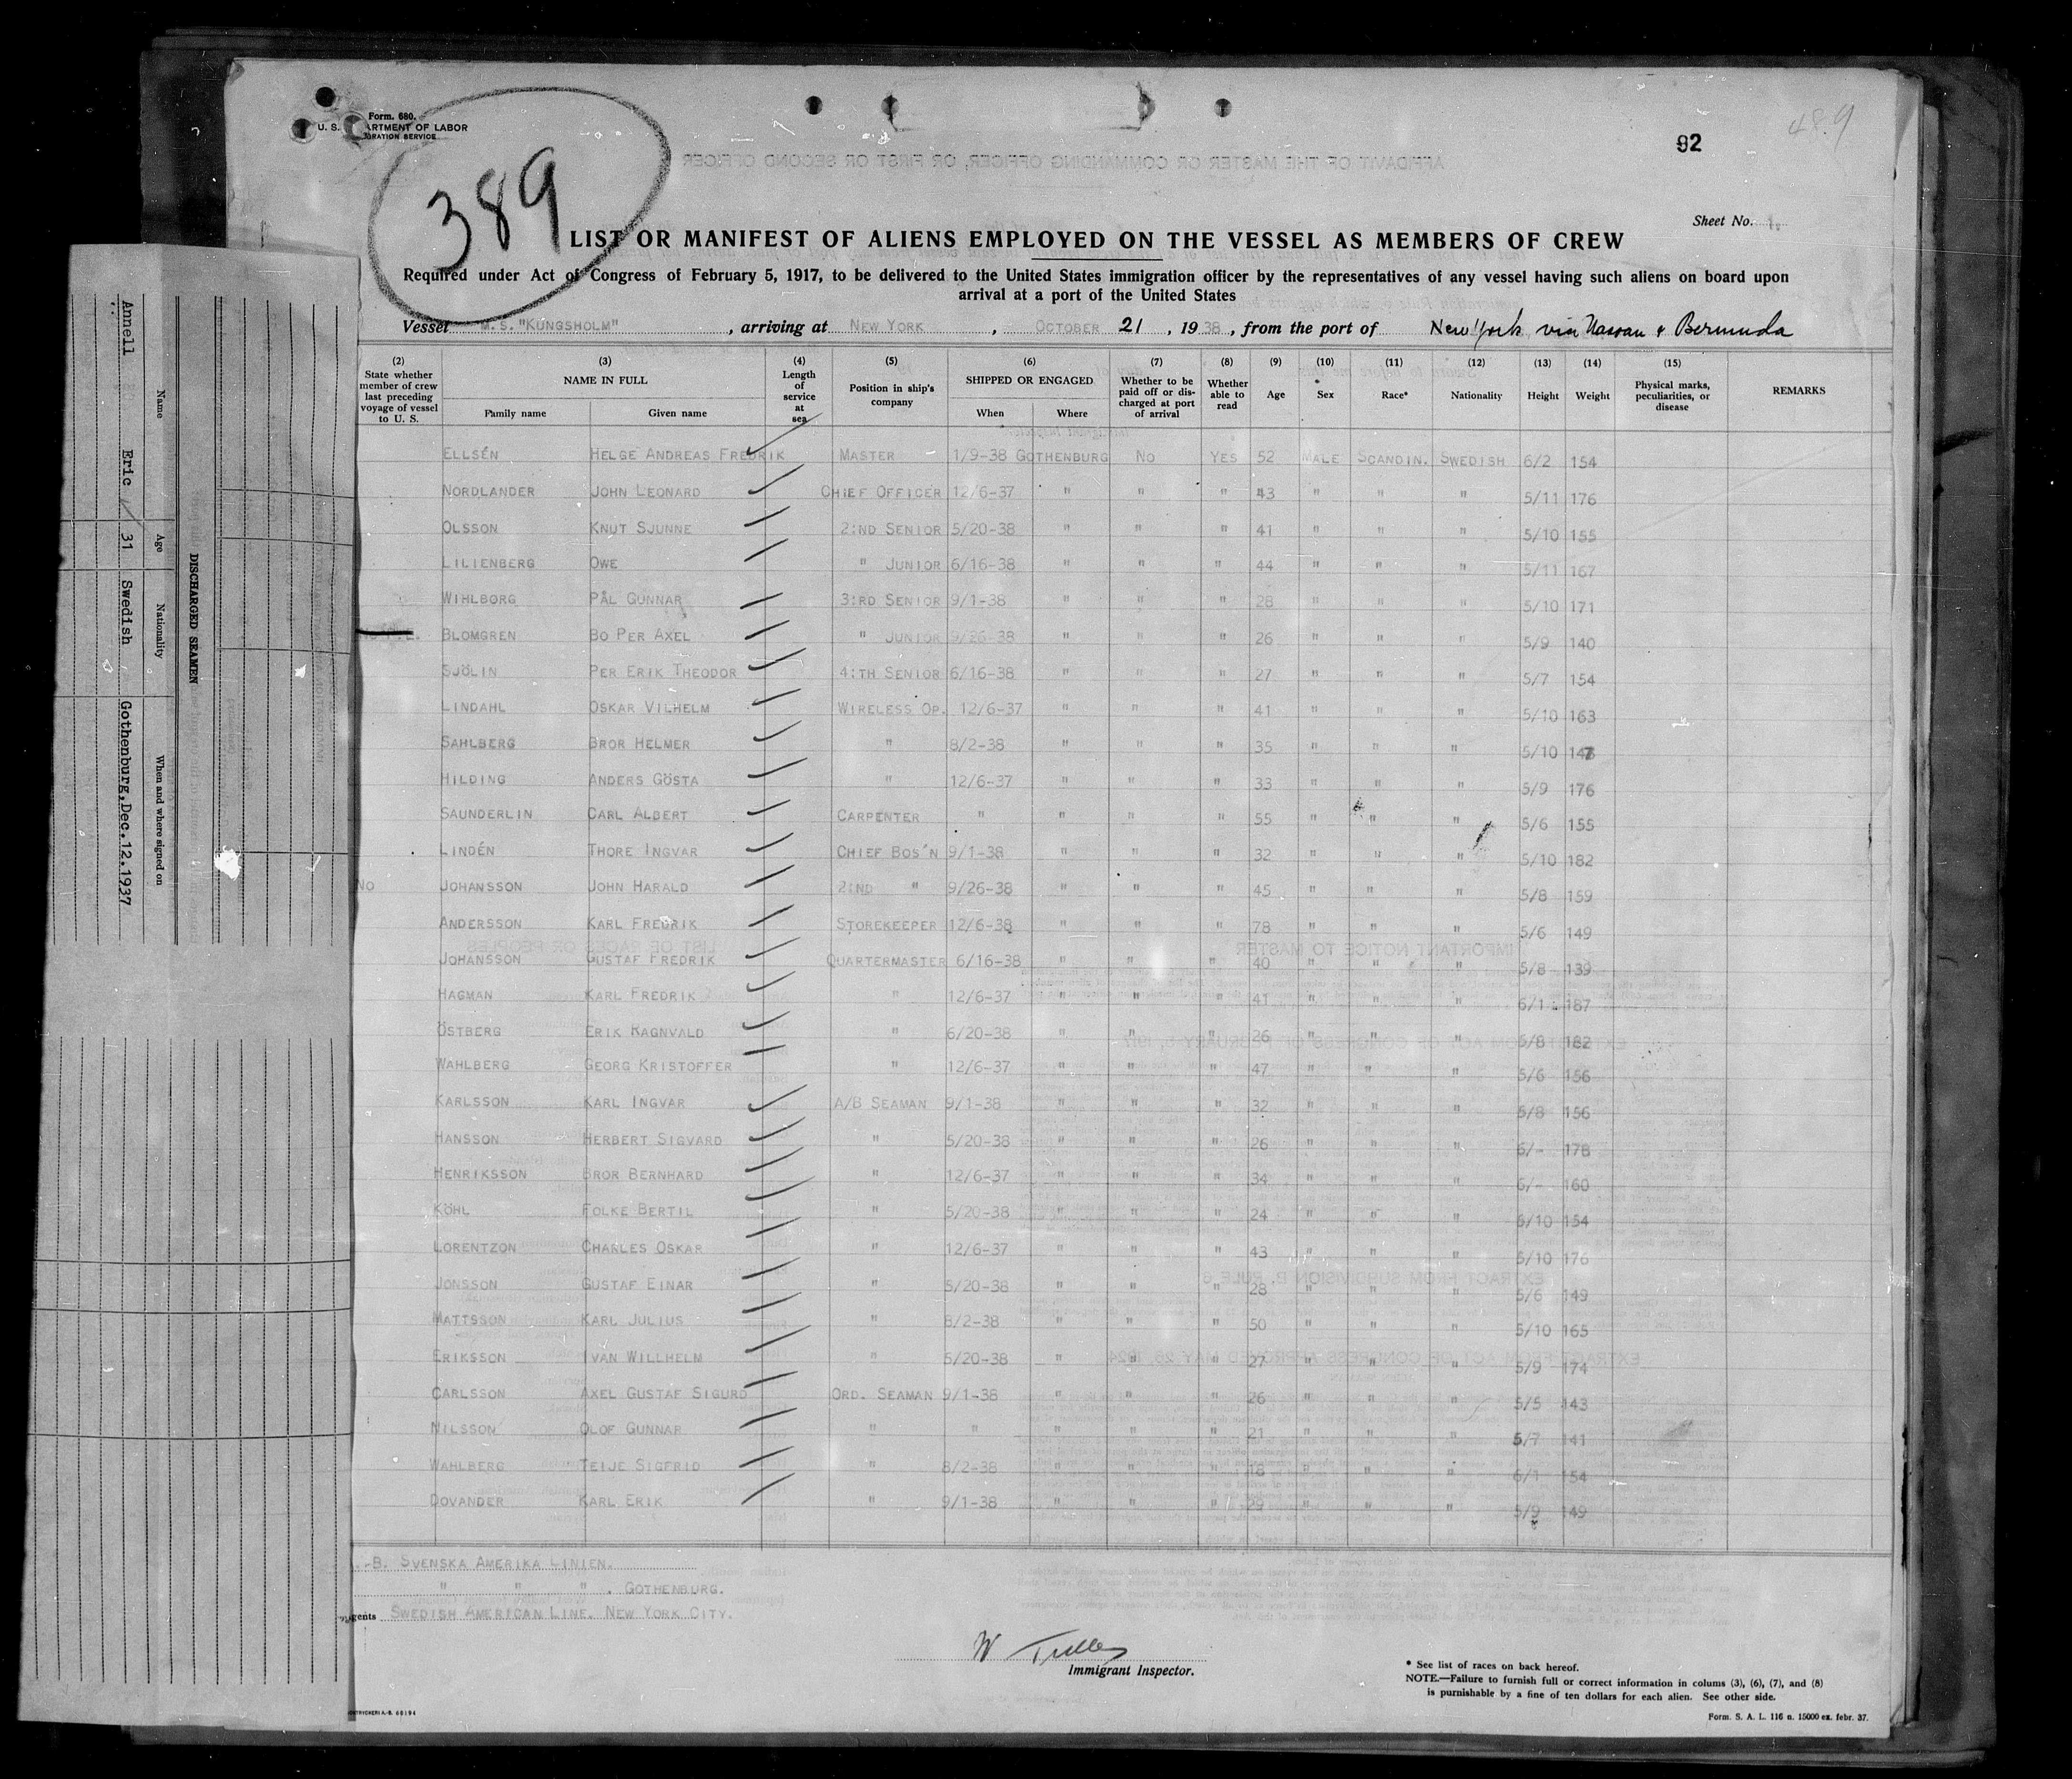 Form. 680.
U. S. ARTMENT OF LABOR
GRATION SERVICE
389
92
489
Sheet No. 1.
LIST OR MANIFEST OF ALIENS EMPLOYED ON THE VESSEL AS MEMBERS OF CREW
Required under Act of Congress of February 5, 1917, to be delivered to the United States immigration officer by the representatives of any vessel having such aliens on board upon
arrival at a port of the United States
Vessel M.S."KUNGSHOLM", arriving at NEW YORK, OCTOBER 21, 1938, from the port of New York via Nassau & Bermuda
(2) (3) (4) (5) (6) (7) (8) (9) (10) (11) (12) (13) (14) (15)
State whether member of crew last preceding voyage of vessel to U. S. NAME IN FULL Family name Given name Length of service at sea Position in ship's company SHIPPED OR ENGAGED When Where Whether to be paid off or discharged at port of arrival Whether able to read Age Sex Race* Nationality Height Weight Physical marks, peculiarities, or disease REMARKS
ELLSÉN HELGE ANDREAS FREDRIK MASTER 1/9-38 GOTHENBURG NO YES 52 MALE SCANDIN. SWEDISH 6/2 154
NORDLANDER JOHN LEONARD CHIEF OFFICER 12/6-37 " " " 43 " " " 5/11 176
OLSSON KNUT SJUNNE 2:ND SENIOR 5/20-38 " " " 41 " " " 5/10 155
LILIENBERG OWE " JUNIOR 6/16-38 " " " 44 " " " 5/11 167
WIHLBORG PÅL GUNNAR 3:RD SENIOR 9/1-38 " " " 28 " " " 5/10 171
BLOMGREN BO PER AXEL " JUNIOR 9/26-38 " " " 26 " " " 5/9 140
SJÖLIN PER ERIK THEODOR 4:TH SENIOR 6/16-38 " " " 27 " " " 5/7 154
LINDAHL OSKAR VILHELM WIRELESS OP. 12/6-37 " " " 41 " " " 5/10 163
SAHLBERG BROR HELMER " 8/2-38 " " " 35 " " " 5/10
HILDING ANDERS GÖSTA " 12/6-37 " " " 33 " " " 5/9 176
SAUNDERLIN CARL ALBERT CARPENTER " " " " 55 " " " 5/6 155
LINDÉN THORE INGVAR CHIEF BOS'N 9/1-38 " " " 32 " " " 5/10 182
NO JOHANSSON JOHN HARALD 2:ND " 9/26-38 " " " 45 " " " 5/8 159
ANDERSSON KARL FREDRIK STOREKEEPER 12/6-38 " " " 78 " " " 5/6 149
JOHANSSON GUSTAF FREDRIK QUARTERMASTER 6/16-38 " " " 40 " " " 5/8 139
HAGMAN KARL FREDRIK " 12/6-37 " " " 41 " " " 6/1 187
ÖSTBERG ERIK RAGNVALD " 6/20-38 " " " 26 " " " 5/8 182
WAHLBERG GEORG KRISTOFFER " 12/6-37 " " " 47 " " " 5/6 156
KARLSSON KARL INGVAR A/B SEAMAN 9/1-38 " " " 32 " " " 5/8 156
HANSSON HERBERT SIGVARD " 5/20-38 " " " 26 " " " 6/- 178
HENRIKSSON BROR BERNHARD " 12/6-37 " " " 34 " " " 6/- 160
KÖHL FOLKE BERTIL " 5/20-38 " " " 24 " " " 5/10 154
LORENTZON CHARLES OSKAR " 12/6-37 " " " 43 " " " 5/10 176
JONSSON GUSTAF EINAR " 5/20-38 " " " 28 " " " 5/6 149
MATTSSON KARL JULIUS " 8/2-38 " " " 50 " " " 5/10 165
ERIKSSON IVAN WILLHELM " 5/20-38 " " " 27 " " " 5/9 174
CARLSSON AXEL GUSTAF SIGURD ORD. SEAMAN 9/1-38 " " " 26 " " " 5/5 143
NILSSON OLOF GUNNAR " " " " " 21 " " " 5/7 141
WAHLBERG TEIJE SIGFRID " 8/2-38 " " " 18 " " " 6/1 154
DOVANDER KARL ERIK " 9/1-38 " " " 29 " " " 5/9 149
.-B. SVENSKA AMERIKA LINIEN.
" " " . GOTHENBURG.
gents SWEDISH AMERICAN LINE. NEW YORK CITY.
W
Immigrant Inspector.
* See list of races on back hereof.
NOTE.—Failure to furnish full or correct information in colums (3), (6), (7), and (8)
is purnishable by a fine of ten dollars for each alien. See other side.
Form. S. A. L. 116 n. 15000 ex. febr. 37.
DISCHARGED SEAMEN
Name Age Nationality When and where signed on
Annell Eric 31 Swedish Gothenburg,Dec.12.1937